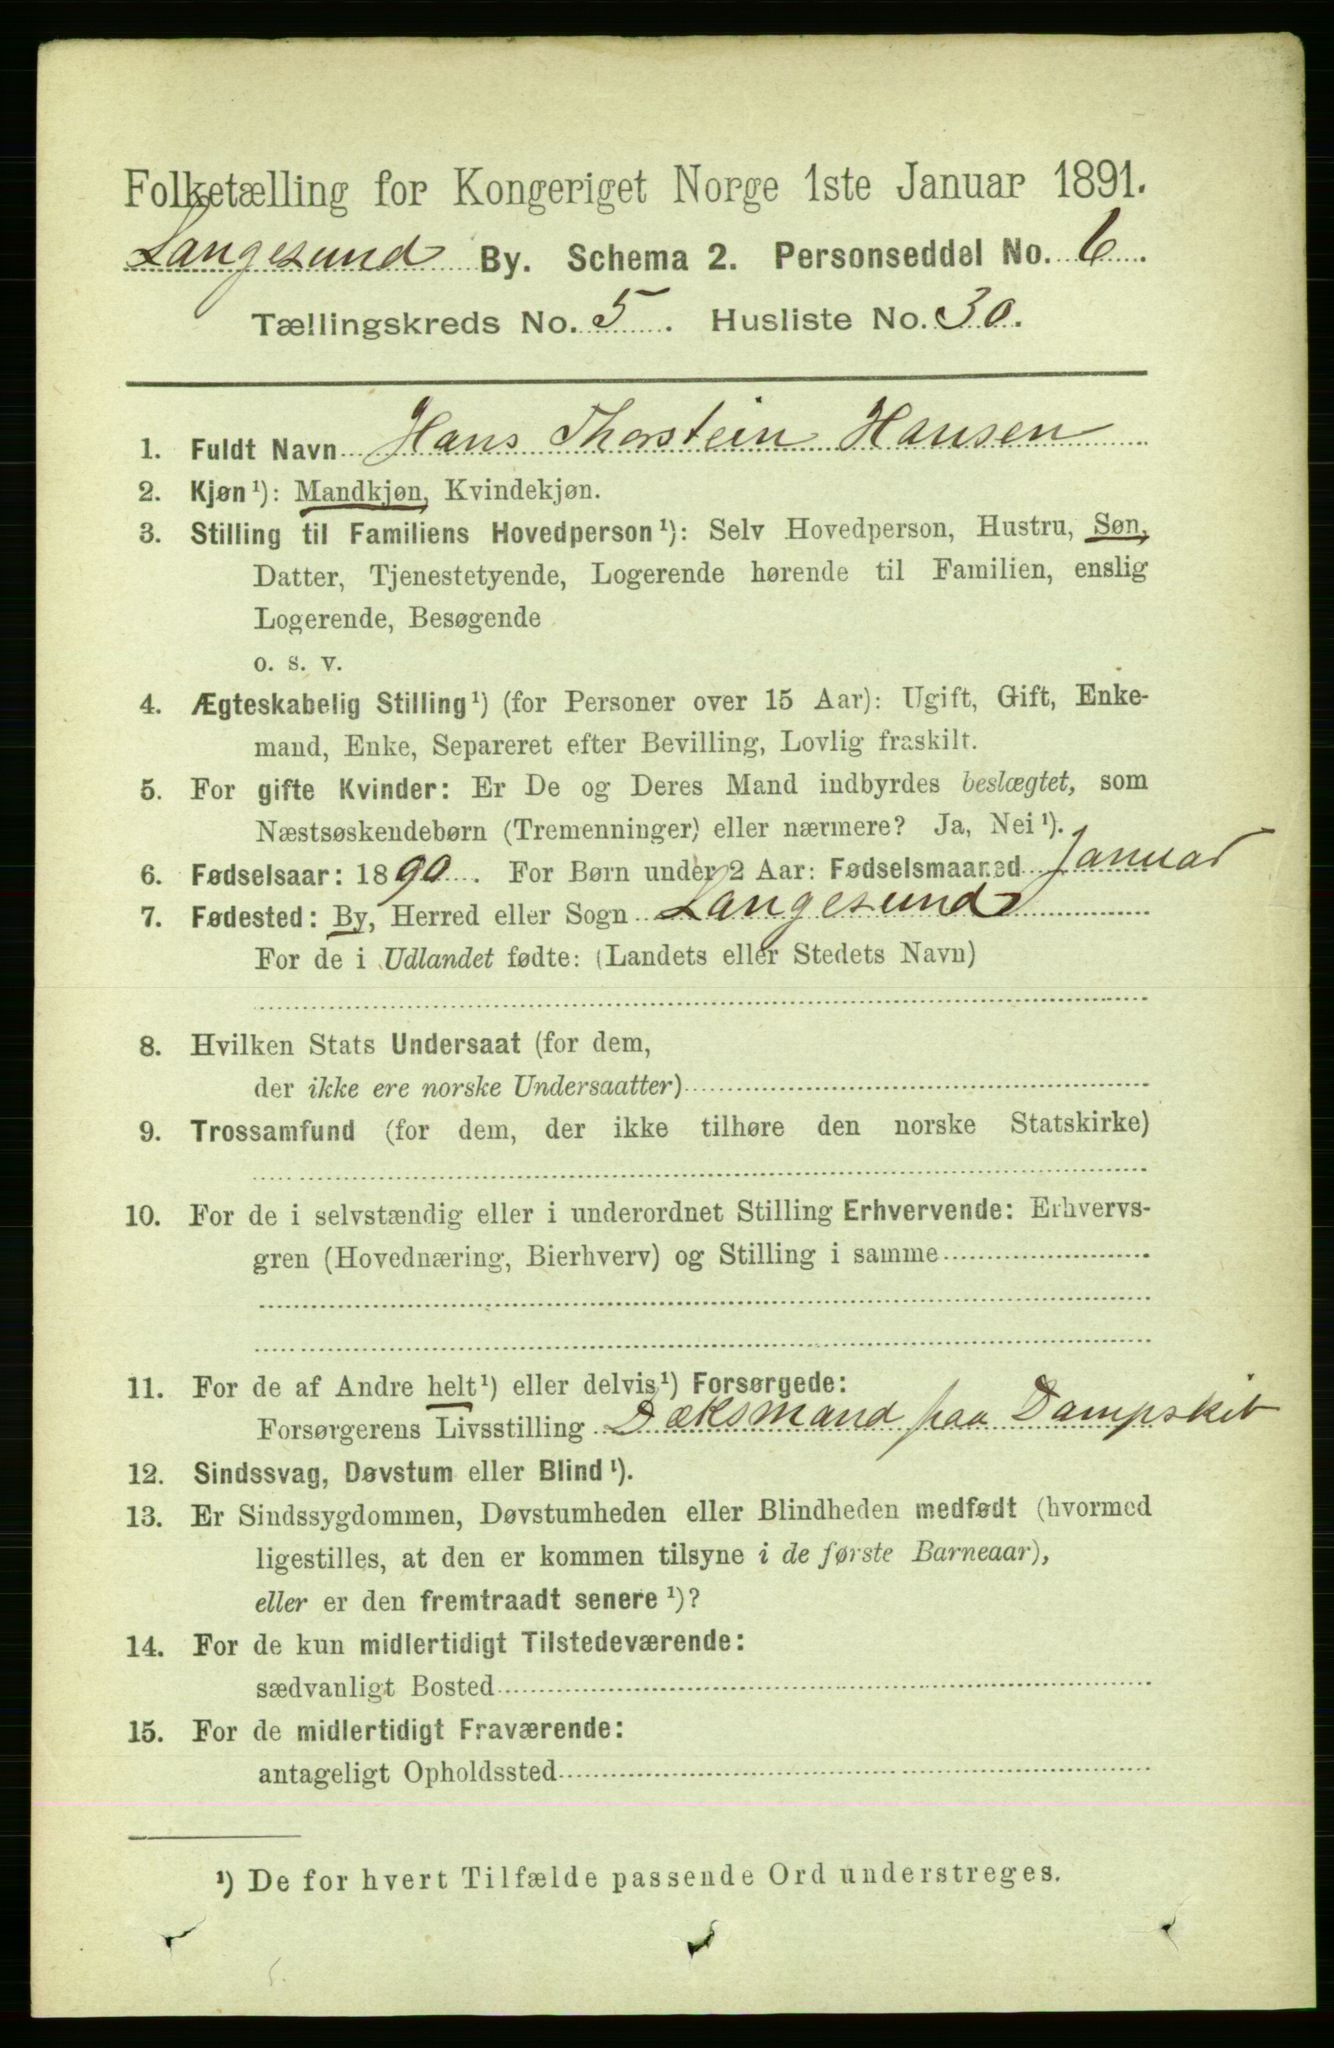 Folketælling for Kongeriget Norge 1ste Januar 1891.
Langesund By. Schema 2. Personseddel No. 6.
Tællingskreds No. 5. Husliste No. 30.
1. Fuldt Navn Hans Thorstein Hansen
2. Kjøn ¹): Mandkjøn, Kvindekjøn.
3. Stilling til Familiens Hovedperson ¹): Selv Hovedperson, Hustru, Søn,
Datter, Tjenestetyende, Logerende hørende til Familien, enslig
Logerende, Besøgende
o. s. v.
4. Ægteskabelig Stilling ¹) (for Personer over 15 Aar): Ugift, Gift, Enke-
mand, Enke, Separeret efter Bevilling, Lovlig fraskilt.
5. For gifte Kvinder: Er De og Deres Mand indbyrdes beslægtet, som
Næstsøskendebørn (Tremenninger) eller nærmere? Ja, Nei ¹).
6. Fødselsaar: 1890. For Børn under 2 Aar: Fødselsmaaned Januar
7. Fødested: By, Herred eller Sogn Langesund
For de i Udlandet fødte: (Landets eller Stedets Navn)
8. Hvilken Stats Undersaat (for dem,
der ikke ere norske Undersaatter)
9. Trossamfund (for dem, der ikke tilhøre den norske Statskirke)
10. For de i selvstændig eller i underordnet Stilling Erhvervende: Erhvervs-
gren (Hovednæring, Bierhverv) og Stilling i samme
11. For de af Andre helt ¹) eller delvis ¹) Forsørgede:
Forsørgerens Livsstilling Dæksmand paa Dampskib
12. Sindssvag, Døvstum eller Blind ¹).
13. Er Sindssygdommen, Døvstumheden eller Blindheden medfødt (hvormed
ligestilles, at den er kommen tilsyne i de første Barneaar),
eller er den fremtraadt senere ¹)?
14. For de kun midlertidigt Tilstedeværende:
sædvanligt Bosted
15. For de midlertidigt Fraværende:
antageligt Opholdssted
¹) De for hvert Tilfælde passende Ord understreges.